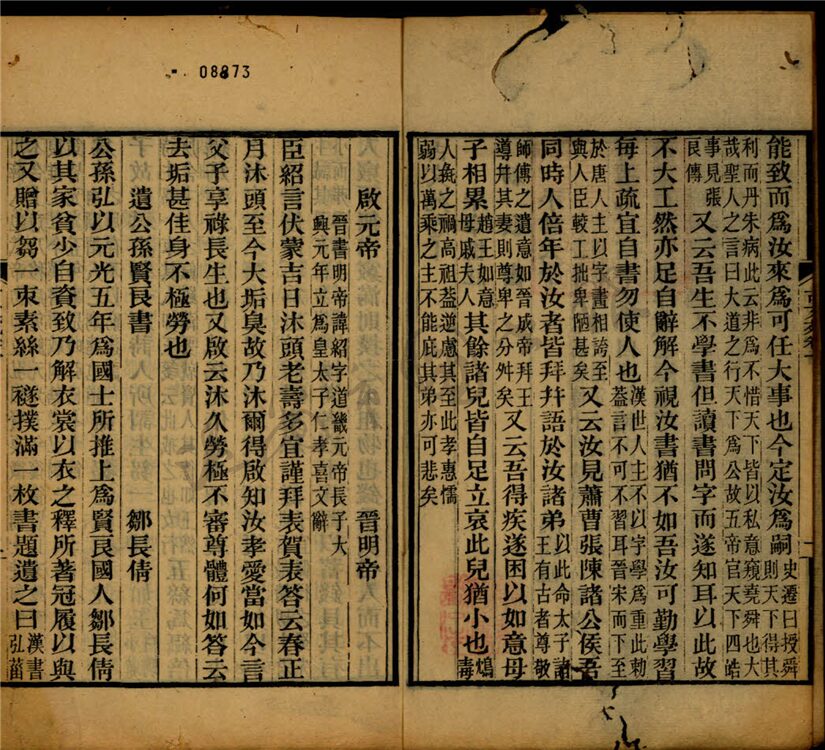 08873
能致而爲汝來爲可任大事也今定汝爲嗣史遷曰授舜則天下得其
利而丹朱病此云非爲不惜天下皆以私意窺堯舜也大
哉聖人之言曰大道之行天下爲公故五帝官天下四皓
事見張良傳又云吾生不學書但讀書問字而遂知耳以此故
不大工然亦足自辭解今視汝書猶不如吾汝可勤學習
每上疏宜自書勿使人也漢世人主不以字學爲重此勅葢言不可不習耳晉宋而下至
於唐人主以字畫相誇至與人臣較工拙卑陋甚矣又云汝見蕭曹張陳諸公侯吾
同時人倍年於汝者皆拜幷語於汝諸弟以此命太子諸王有古者尊敬
師傅之遺意如晉成帝拜王導幷其妻則尊卑之分舛矣又云吾得疾遂困以如意母
子相累趙王如意母戚夫人其餘諸兒皆自足立哀此兒猶小也鴆毒
人彘之禍高祖葢逆慮其至此孝惠懦
弱以萬乘之主不能庇其弟亦可悲矣
啟元帝 晉明帝
晉書明帝諱紹字道畿元帝長子大
興元年立爲皇太子仁孝喜文辭
臣紹言伏蒙吉日沐頭老壽多宜謹拜表賀表答云春正
月沐頭至今大垢臭故乃沐爾得啟知汝孝愛當如今言
父子享祿長生也又啟云沐久勞極不審尊體何如答云
去垢甚佳身不極勞也
遺公孫賢良書 鄒長倩
公孫弘以元光五年爲國士所推上爲賢良國人鄒長倩
以其家貧少自資致乃解衣裳以衣之釋所著冠履以與
之又贈以芻一束素絲一襚撲滿一枚書題遺之曰漢書弘菑